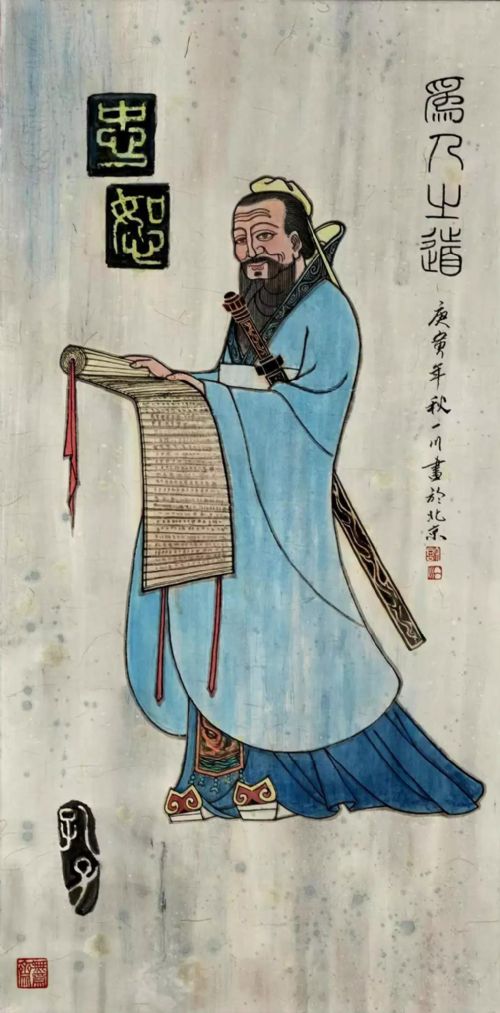 為人之道
庚寅年秋一川畫於北京
忠
恕
孔子